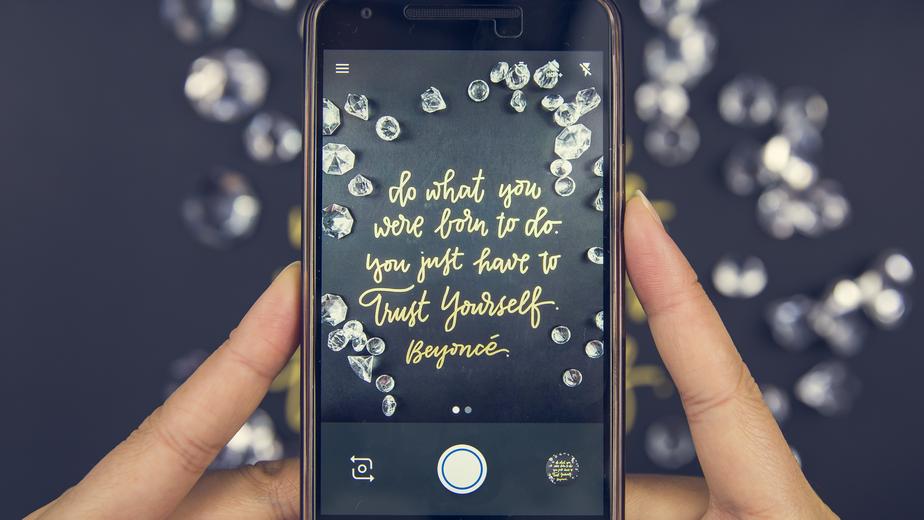 do what you
were born to do.
you just have to
Trust Yourself.
Beyoncé.